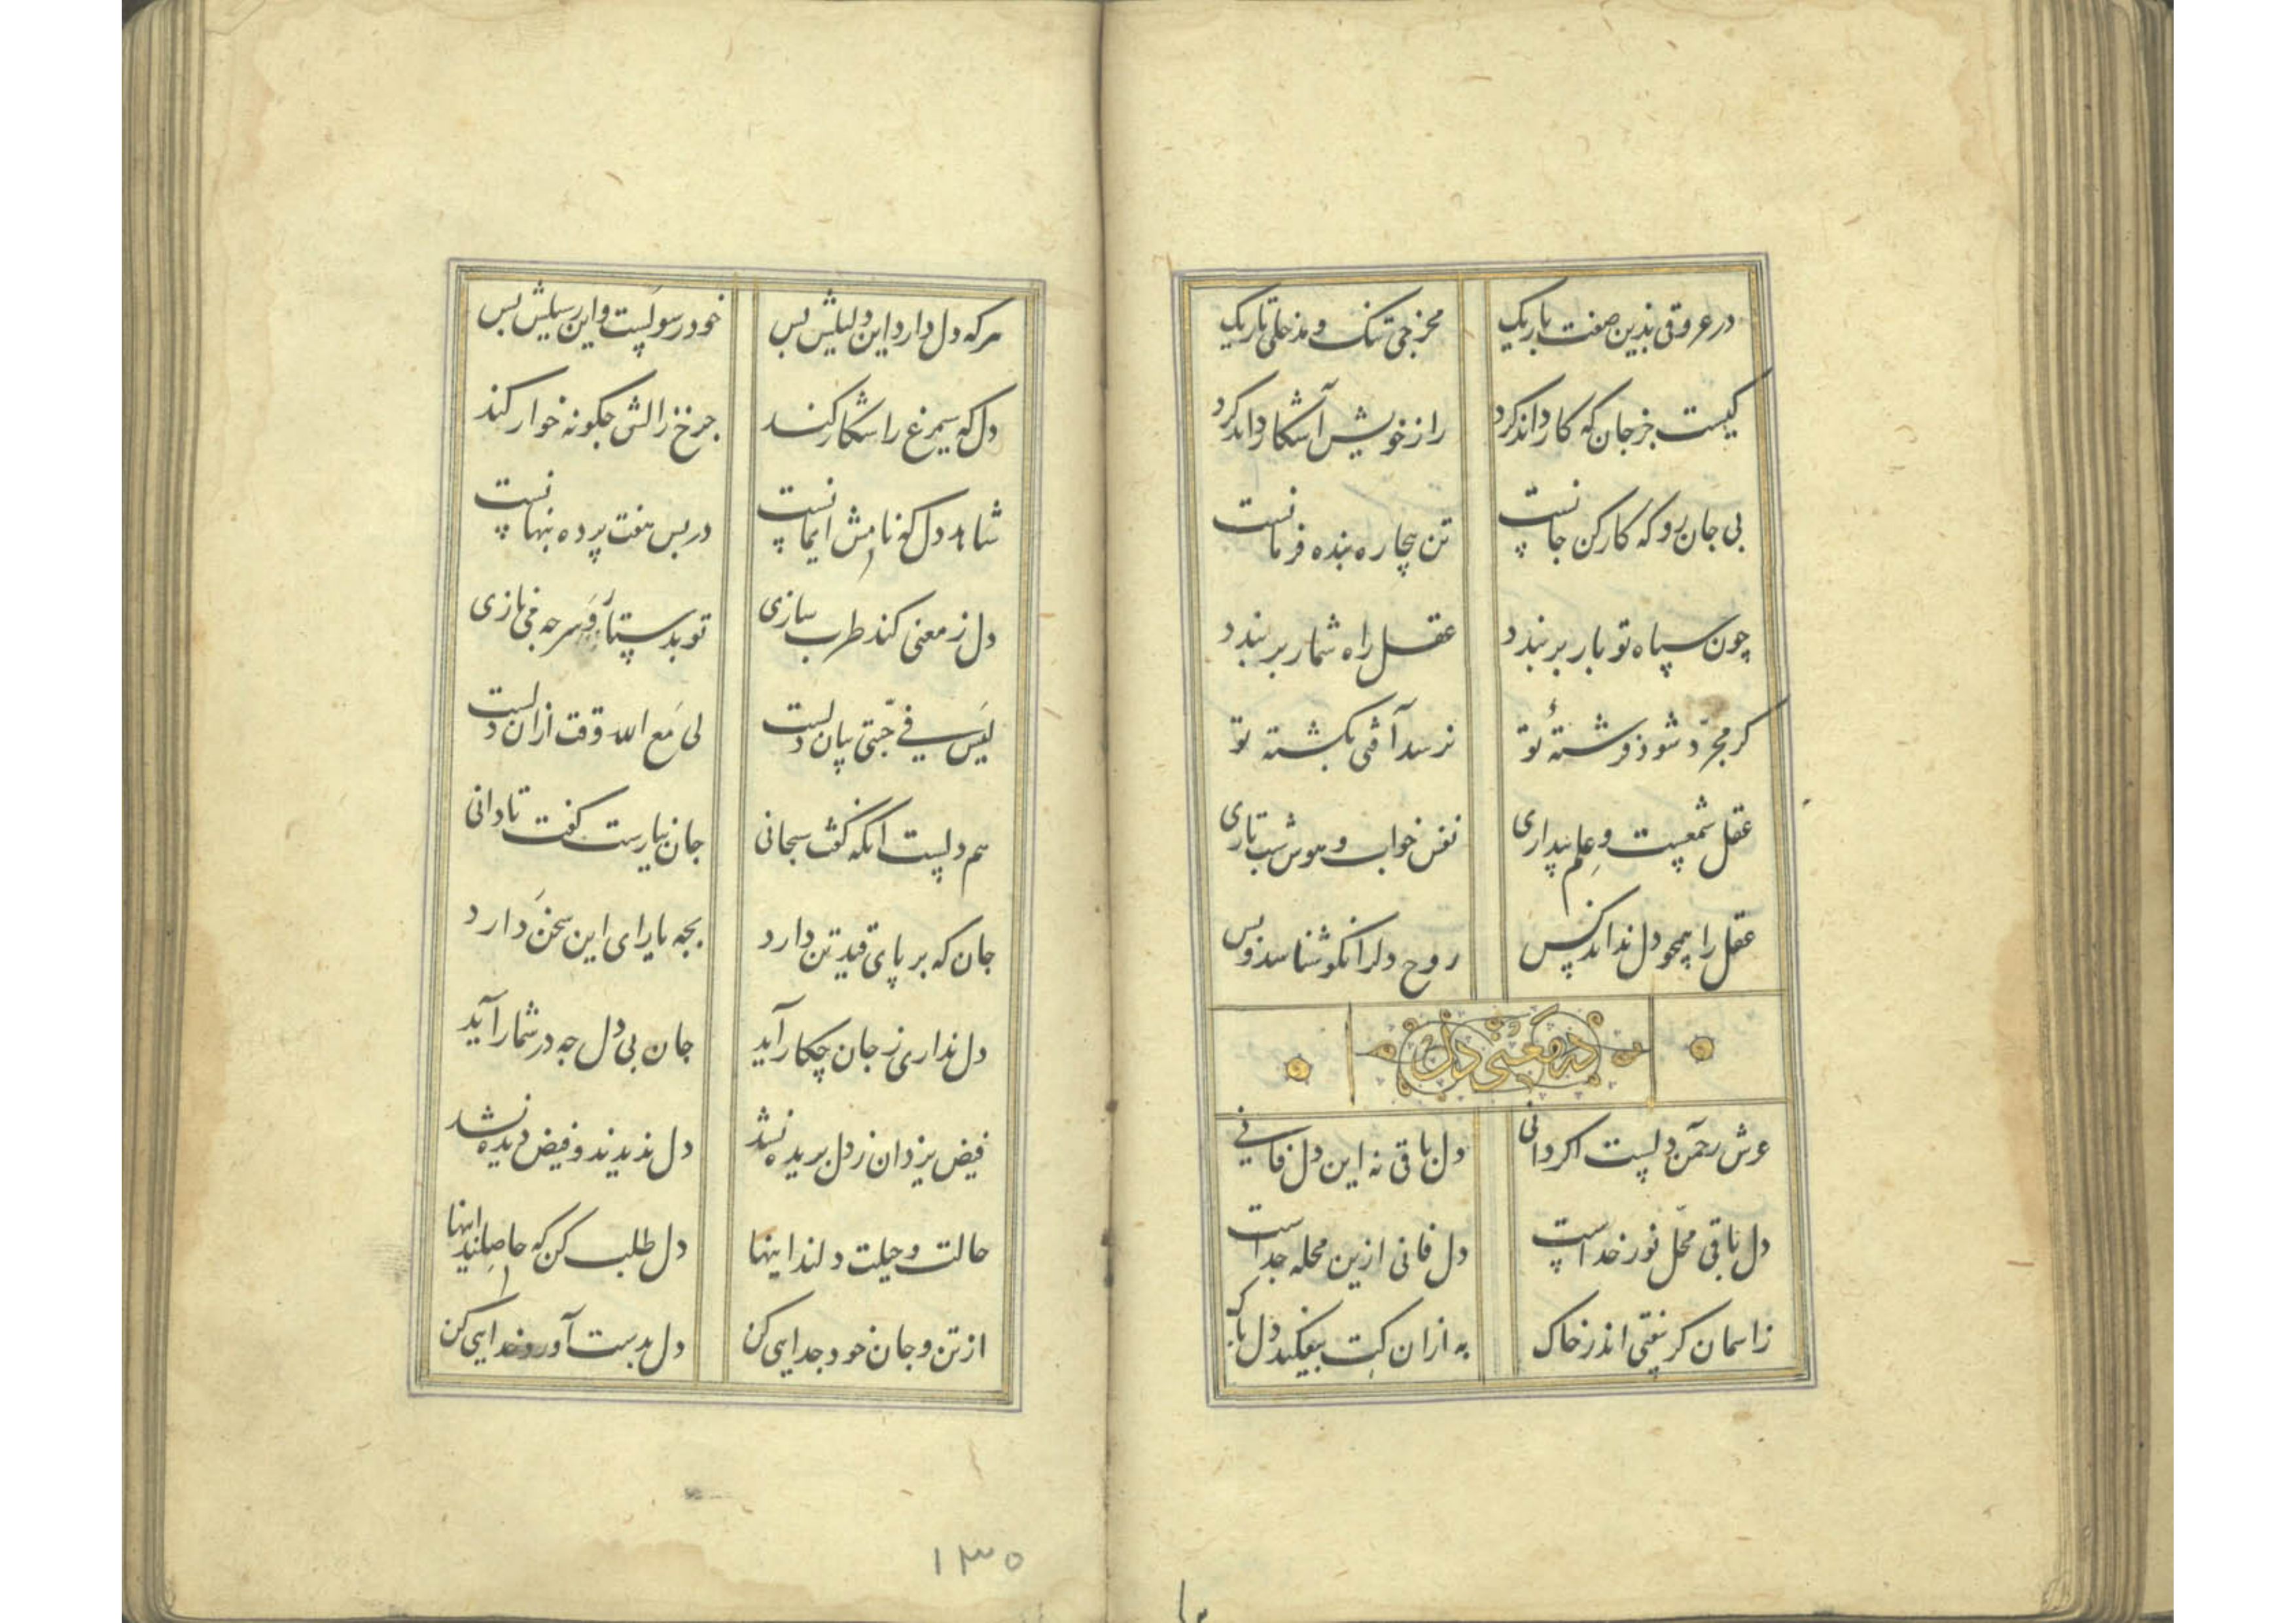 در عروقی بدین صفت باریک مخرجی تنک و مدخلی تاریک
کیست جز جان که کار داند کرد راز خویش آشکار داند کرد
پی جان رو که کارکن جانست تن بیچاره بنده فرمانست
چون سپاه تو بار بربندد عقل راه شمار بربندد
کر مجرّد شود فرشتهٔ تو نرسد آفتی بکشته تو
عقل شمعیست و علم بیداری نفس خواب و هوس شب تاری
عقل را همچو دل نداند کس روح دلرا نکو شناسد و بس
در معنی دل
عرش رحمن دلست اکر دانی دل باقی نه این دل فانی
دل باقی محلّ نور خداست دل فانی ازین محله جداست
زاسمان کر بیفتی اندر خاک به ازان کت بیفکند دل پاک
هرکه دل دارد این دلیلش بس خود رسولست و این رسیلش بس
دل که سیمرغ را شکار کند چرخ زالش چکونه خوار کند
شاهد دل که نامش ایمانست در پس هفت پرده پنهانست
دل ز معنی کند طرب سازی تو بدستار و سر چه می نازی
لیس فی جبّتی بیان دلست لی مع الله وقت ازان دلست
هم دلست انکه کفت سبحانی جان نیارست کفت تا دانی
جان که بر پای قید تن دارد بچه یارای این سخن دارد
دل نداری ز جان چکار آید جان بی دل چه در شمار آید
فیض یزدان ز دل بریده نشد دل ندیدند و فیض دیده نشد
حالت و حیلت دلند اینها دل طلب کن که حاصلند اینها
از تن و جان خود جدایی کن دل بدست آور و خدایی کن
۱۳۵